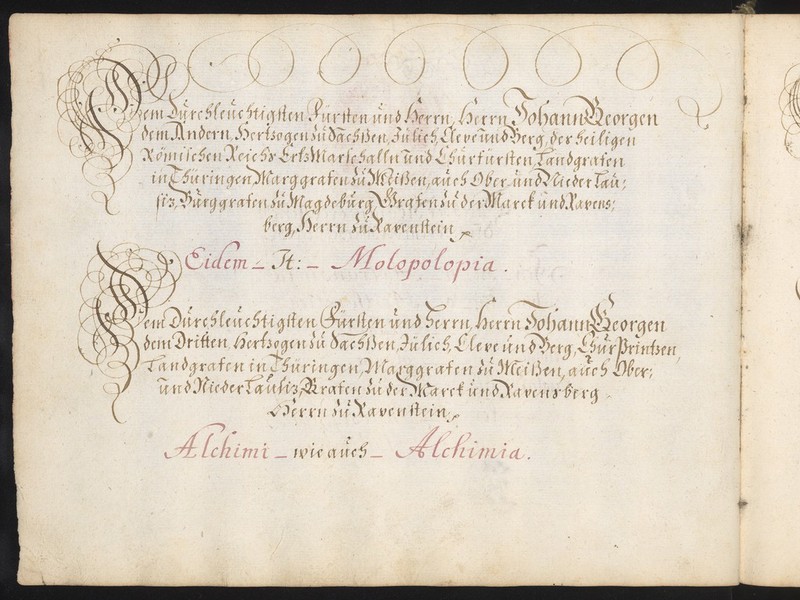 Dem Dürchleüchtigsten Fürsten und Herrn, Herrn Johann Georgen
dem Andern, Hertzogen zu Sachßen, Jülich, Cleve und Berg, der heiligen
Römischen Reichs ErtzMarschalln und Chürfürsten, Landgrafen
in Thüringen, Marggrafen zu Meißen, auch Ober- und Nieder Lau-
sitz, Bürggrafen zu Magdebürg, Grafen zu der Marck und Ravens-
berg, Herrn zu Ravenstein
Eidem – It: – Molopolopia.
Dem Dürchleüchtigsten Fürsten und Herrn, Herrn Johann Georgen
dem Dritten, Hertzogen zu Sachßen, Jülich, Cleve und Berg, ChürPrintzen,
Landgrafen in Thüringen, Marggrafen zu Meißen, auch Ober-
und Nieder Lausitz, Grafen zu der Marck und Ravensberg
Herrn zu Ravenstein
Alchimi – wie aüch – Alchimia.